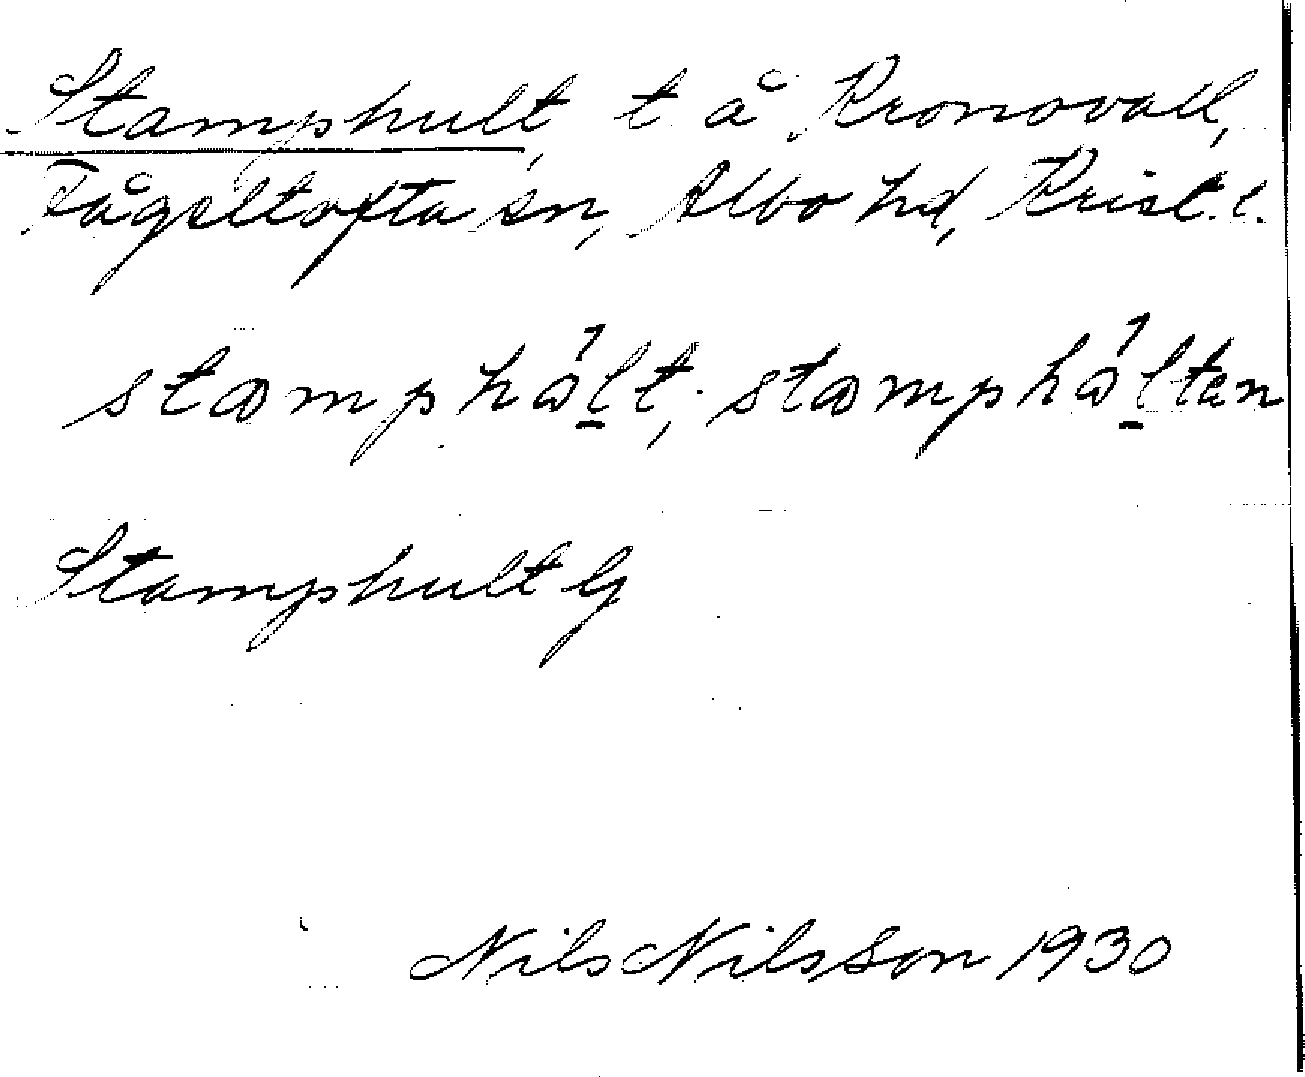 Stamphult t å Kronovall,
Fågeltofta sn, Albo hd, Krist. l.
stamphålt; stamphåltən
Stamphult G
Nils Nilsson 1930